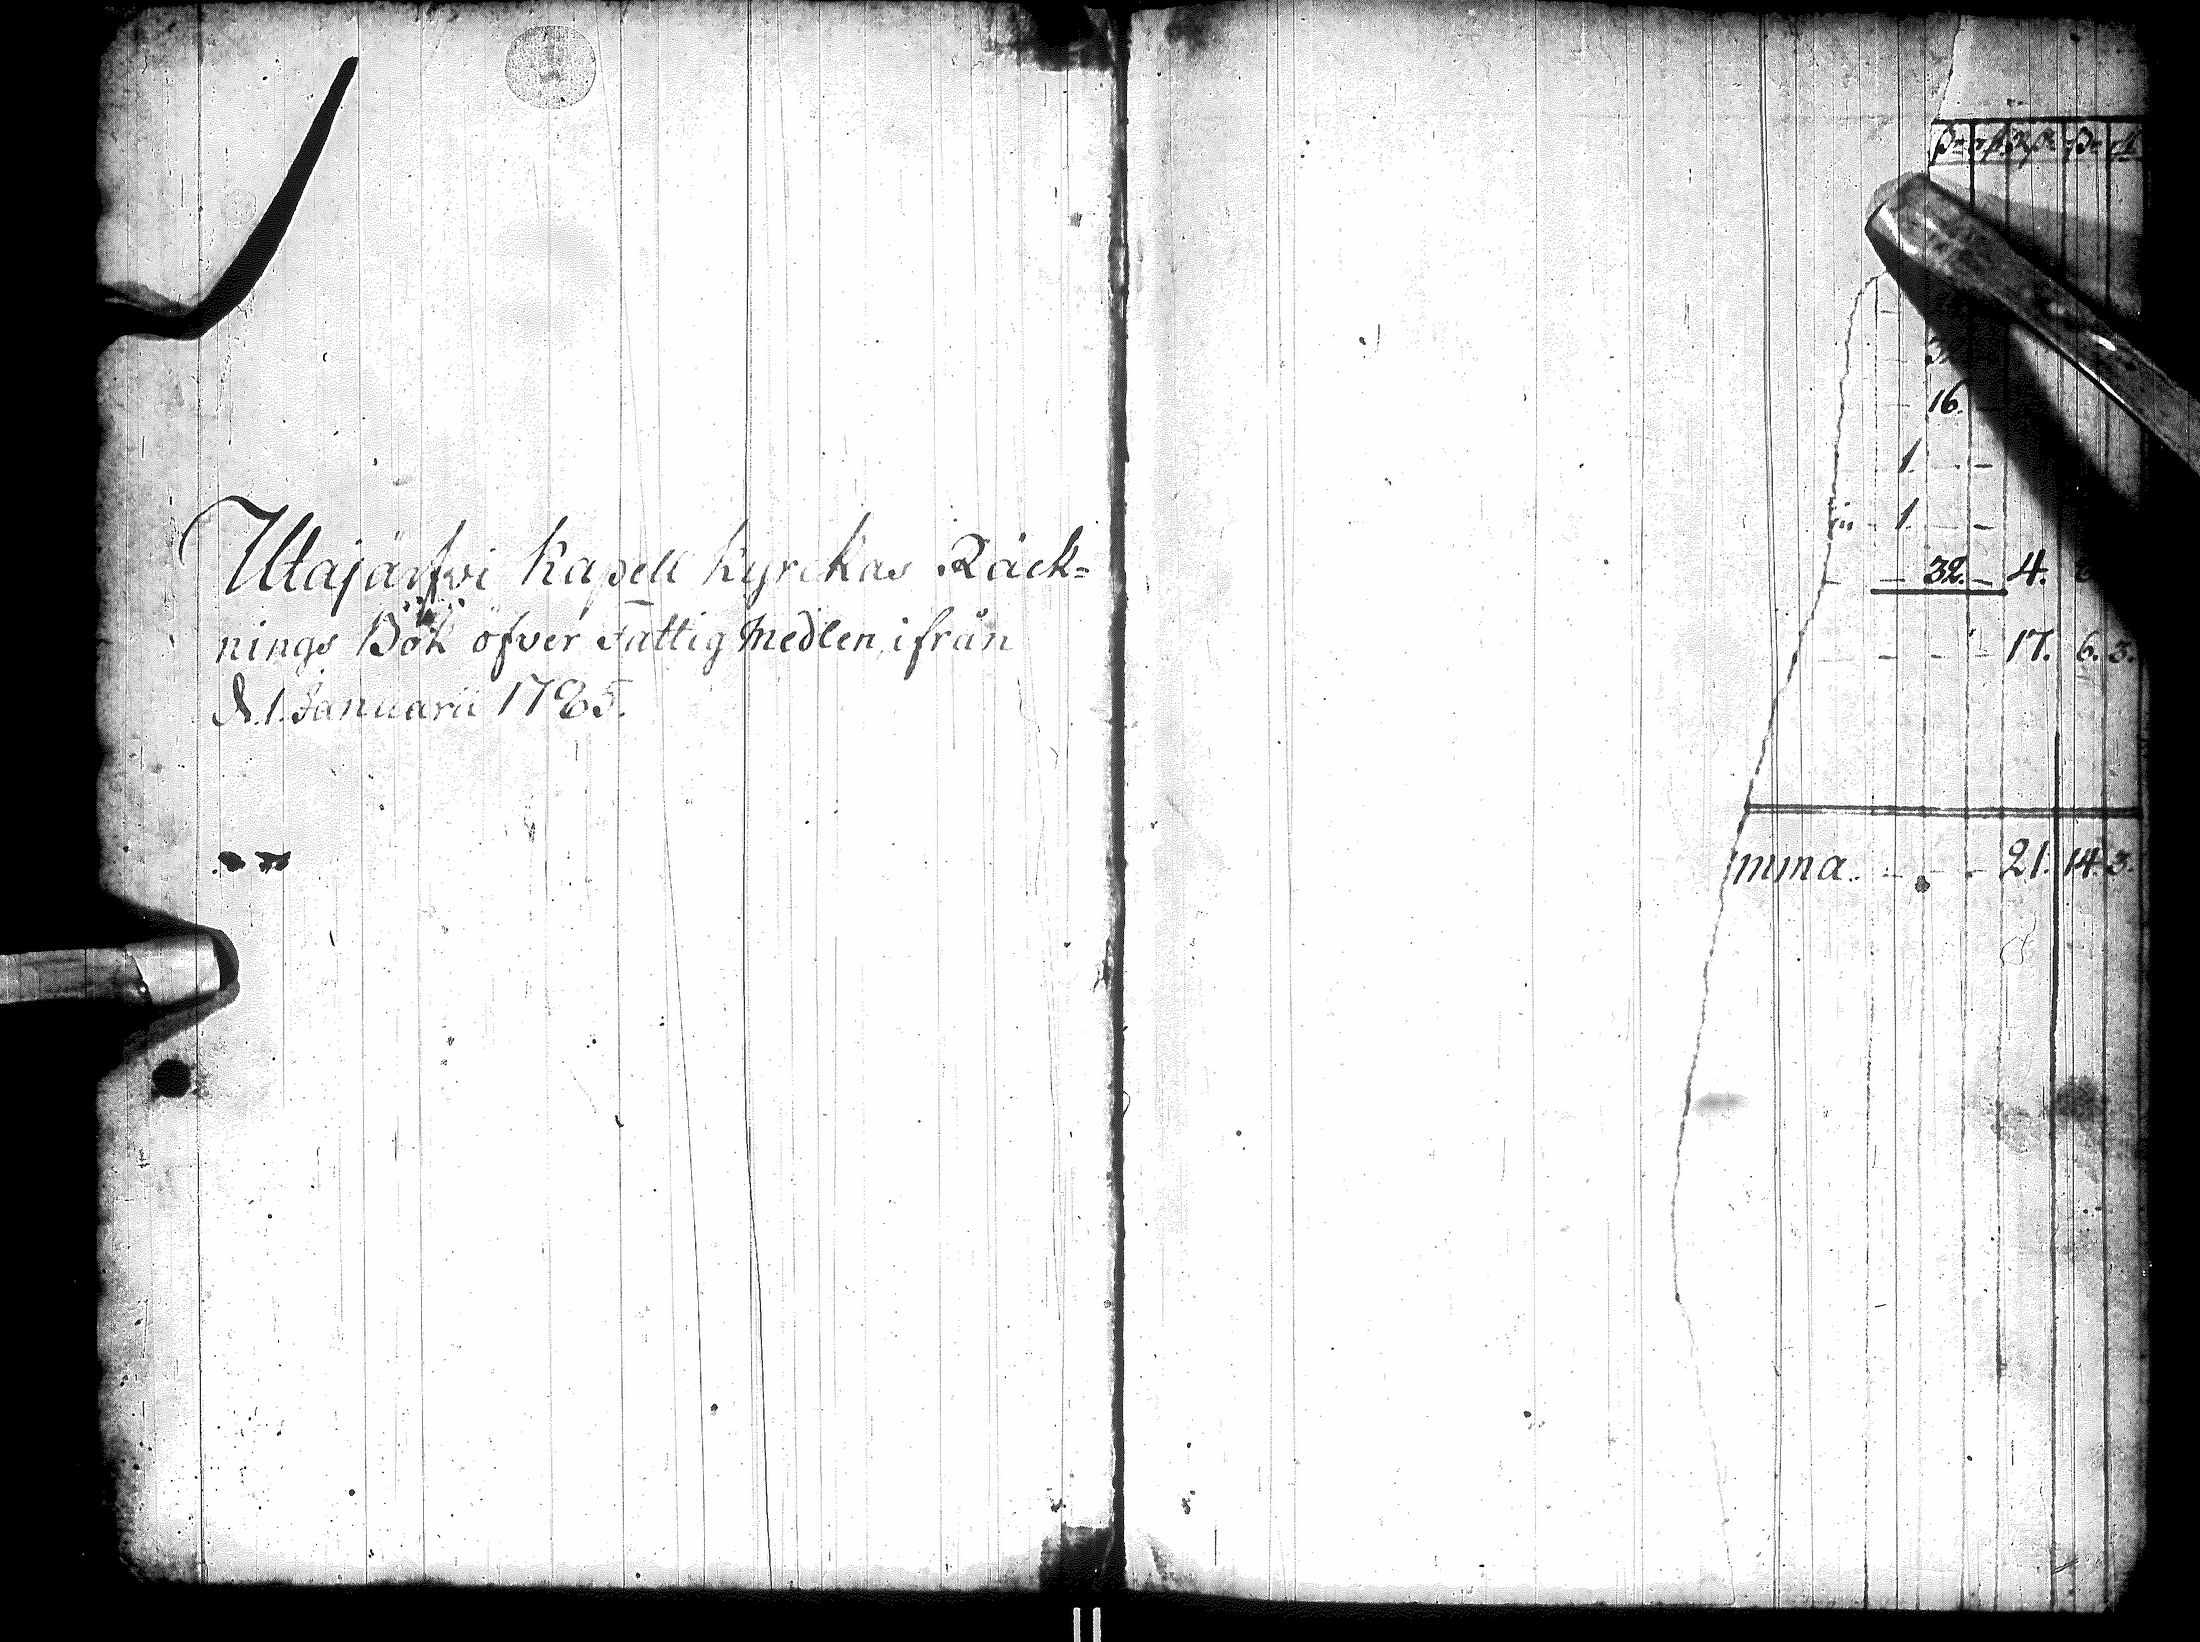 Utajärfvi Kapell Kyrckas Räck=
nings Bok öfver Fattig Medlen, ifrån
d. 1. Januarii 1785.
16.
1. - -
1. - -
- 32. - 4.
- - - 17. 6. 3.
mma. - - - 21. 14. 3.